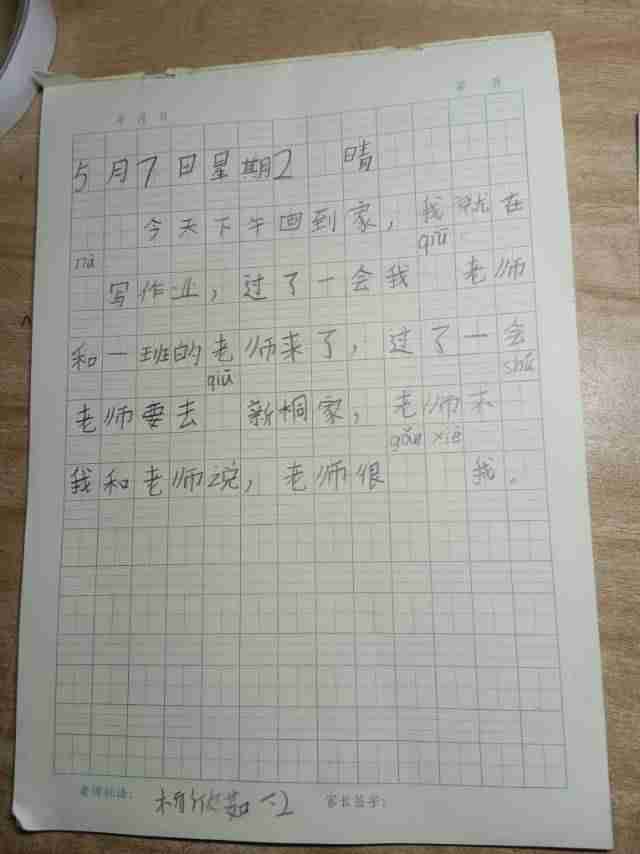 年 月 日 第 页
5月7日星期2 晴
今天下午回到家，我就在
nà qiū
写作业，过了一会我 老师
和一班的老师来了，过了一会
qiū shū
老师要去 新桐家，老师不
gǎn xiè
我和老师说，老师很 我。
老师评语： 一2 家长签字：